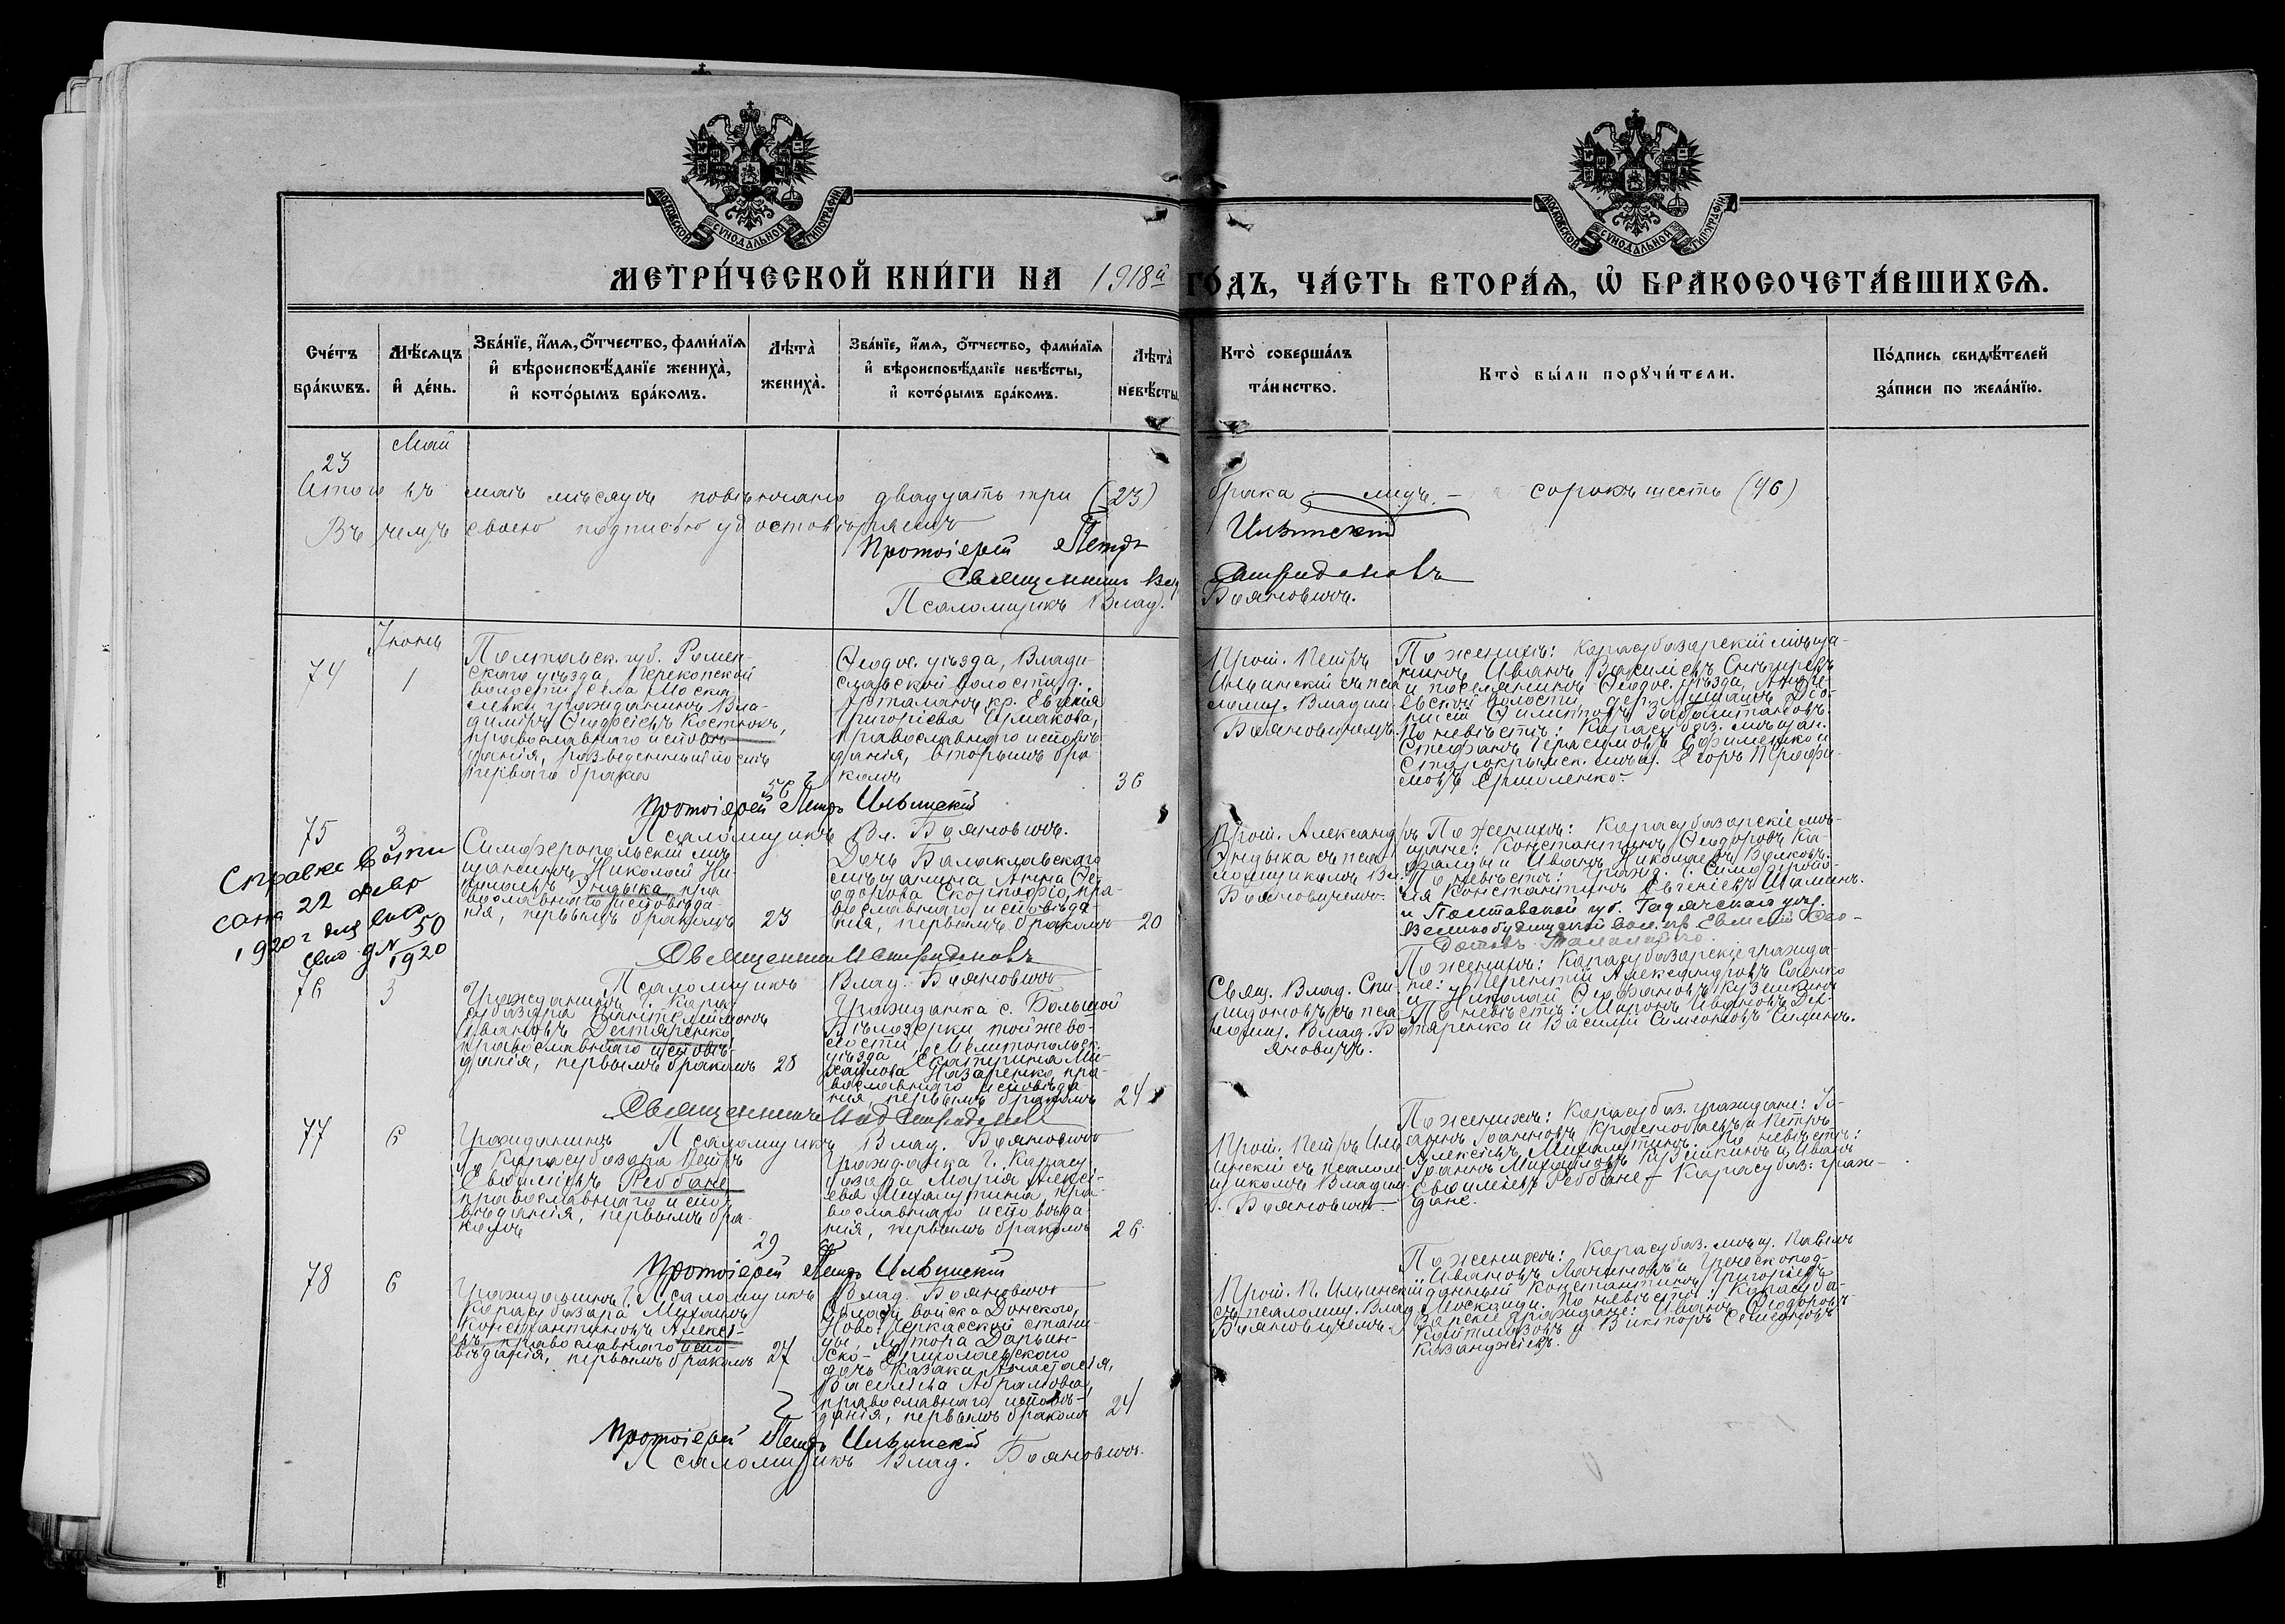 МОСКОВСКОЙ СѴНОДАЛЬНОЙ ТИПОГРАФІИ
МОСКОВСКОЙ СѴНОДАЛЬНОЙ ТИПОГРАФІИ
МЕТРИ́ЧЕСКОЙ КНИ́ГИ НА 1918й ГО́ДЪ, ЧА́СТЬ ВТОРА́Ѧ, Ѡ҆ БРАКОСОЧЕТА́ВШИХСѦ.
Сче́тъ бра́кѡвъ.
Мѣ́сѧцъ и҆ де́нь.
Зва́нїе, и҆́мѧ, ѻ҆́тчество, фами́лїѧ и҆ вѣроисповѣ́данїе жениха̀, и҆ кото́рымъ бра́комъ.
Лѣ̀та жениха̀.
Зва́нїе, и҆́мѧ, ѻ҆́тчество, фами́лїѧ и҆ вѣроисповѣ́данїе невѣ́сты, и҆ кото́рымъ бра́комъ.
Лѣта̀ невѣ́сты.
Кто̀ соверша́лъ та́инство.
Кто̀ бы́ли порꙋчи́тели.
По́дпись свидѣ́телей за́писи по жела́нїю.
Май
23
Итого въ маѣ мѣсяцѣ повѣнчано двадцать три (23) брака лицъ – сорокъ шесть (46)
Въ чемъ своею подписью удостовѣряемъ
Протоіерей Петръ Ильинскій
Священникъ Спиридоновъ
Псаломщикъ Влад. Бояновичъ.
Іюнь
74
1
Полтавск. губ. Ромен-
скаго уѣзда, Перекопской
волости, села Моска-
левки гражданинъ Вла-
диміръ Костюкъ,
православнаго исповѣ-
данія, разведенный послѣ
перваго брака
56
Ѳеодос. уѣзда, Влади-
славской волости, д.
кр. Евдокія
Григоріева Ермакова,
православнаго исповѣ-
данія, вторымъ бра-
комъ
36
Прот. Петръ
Ильинскій съ пса-
ломщ. Владим.
Бояновичемъ.
По женихѣ: Карасубазарскій мѣща-
нинъ Иванъ Василіевъ Снѣгиревъ
и поселянинъ Ѳеодос. уѣзда, Андре-
евской волости, дер.
По невѣстѣ: Карасубаз. мѣщан.
Стефанъ Герасимовъ Ефименко и
Старокрымск. мѣщ. Егоръ Трофи-
мовъ Ермоленко.
Протоіерей Петръ Ильинскій
Псаломщикъ Вл. Бояновичъ.
75
3
Справка
22 февр
1920 г
№ 50
1920
Симферопольскій мѣ-
щанинъ Николай Ни-
колаевъ Эндыка, пра-
вославнаго исповѣда-
нія, первымъ бракомъ
23
Дочь Балаклавскаго
мѣщанина Анна Ѳе-
одорова пра-
вославнаго исповѣда-
нія, первымъ бракомъ
20
Прот. Александръ
Эндыка съ пса-
ломщикомъ Вл.
Бояновичемъ.
По женихѣ: Карасубазарскіе мѣ-
щане: Константинъ Ѳеодоровъ Ка-
и Иванъ Николаевъ Волковъ.
По невѣстѣ: гражд. г. Симферопо-
ля Константинъ Евгеніевъ Шаминъ.
и Полтавской губ. Гадячскаго уѣз.
Великобудищской вол. кр. Евмений Ѳео-
Священникъ Спиридоновъ
Псаломщикъ Влад. Бояновичъ
76
3
Гражданинъ г. Кара-
субазара Пантелеймонъ
Ивановъ Дегтяренко
православнаго исповѣ-
данія, первымъ бракомъ
28
Гражданка с. Большой
Бѣлозерки той же во-
лости, Мелитопольск.
уѣзда Екатерина Ми-
хайлова Назаренко, пра-
вославнаго исповѣда-
нія, первымъ бракомъ
24
Свящ. Влад. Спи-
ридоновъ съ пса-
ломщ. Влад. Бо-
яновичъ.
По женихѣ: Карасубазарскіе гражда-
не: Терентій Александровъ Саенко
и Николай Кузьминъ
По невѣстѣ: Миронъ Ивановъ Дег-
тяренко и Василій Симеоновъ Силинъ.
Священникъ Влад Спиридоновъ
Псаломщикъ Влад. Бояновичъ
77
6
Гражданинъ
г. Карасубазара Петръ
Евфиміевъ Реббане
православнаго испо-
вѣданія, первымъ бра-
комъ
29
Гражданка г. Карасу-
базара Марія Алексі-
ева Михалутина, пра-
вославнаго исповѣда-
нія, первымъ бракомъ
26
Прот. Петръ Иль-
инскій съ псалом-
щикомъ Владим.
Бояновичъ.
По женихѣ: Карасубаз. граждане: Іо-
аннъ Іоанновъ и Петръ
Алексіевъ Михалутинъ. По невѣстѣ:
Іоаннъ Михайловъ Кузьминъ и Иванъ
Евфиміевъ Реббане – Карасубаз: граж-
дане.
Протоіерей Петръ Ильинскій
Псаломщикъ Влад. Бояновичъ
78
6
Гражданинъ г.
Карасубазара Михаилъ
Константиновъ Алексі-
евъ православнаго испо-
вѣданія, первымъ бракомъ
27
Области войска Донского,
Ново-Черкасской стани-
цы, хутора Дарьин-
ско-Ермолаевскаго
дочь казака Анастасія,
Васильева Абрамова,
православнаго исповѣ-
данія, первымъ бракомъ
24
Прот. П. Ильинскій
съ псаломщ. Влад.
Бояновичемъ.
По женихѣ: Карасубаз. мѣщ. Павелъ
Ивановъ и Греческопод-
данный Константинъ Григорьевъ
По невѣстѣ: Карасуба-
зарскіе граждане: Иванъ Ѳеодоровъ
и Викторъ
Казанджіевъ.
Протоіерей Петръ Ильинскій
Псаломщикъ Влад. Бояновичъ.